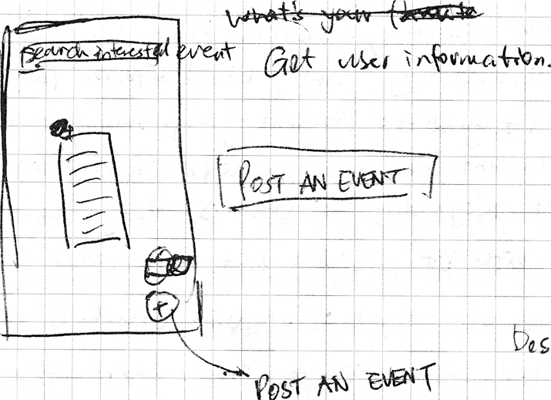 What's your
Search interested event
Get user information.
POST AN EVENT
+
Des
POST AN EVENT